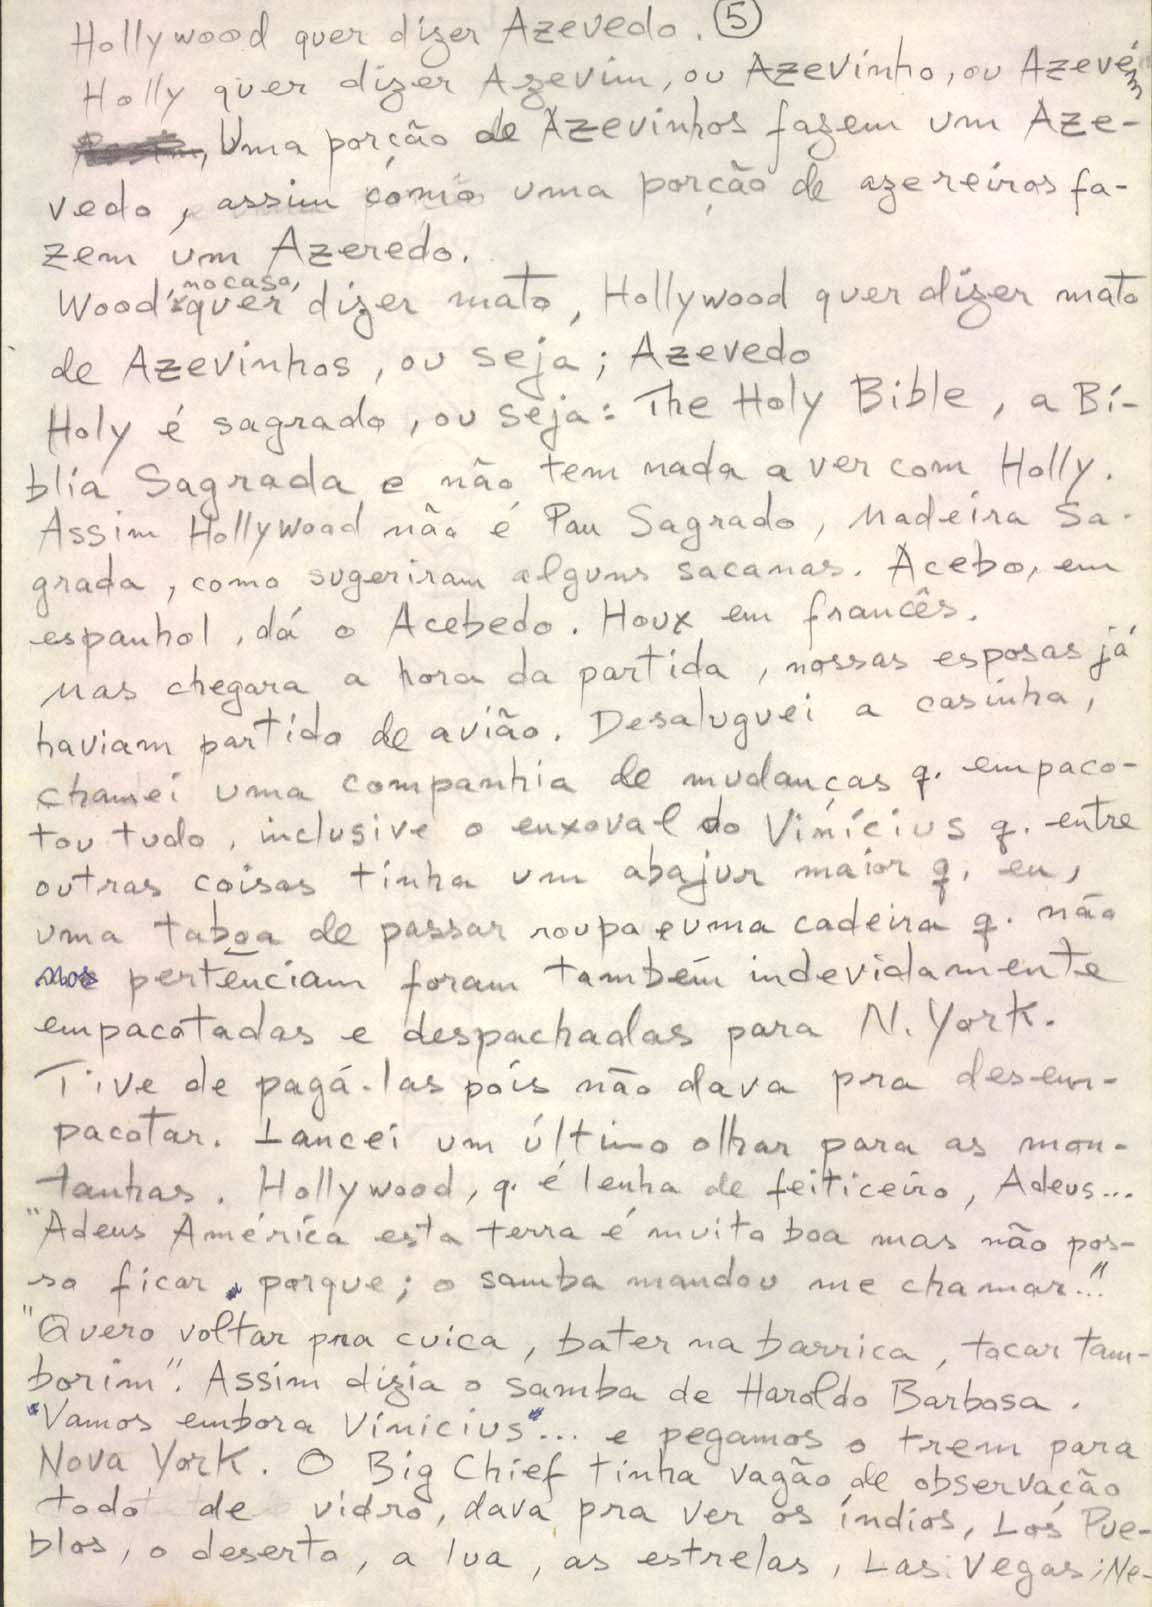 Hollywood quer dizer Azevedo. 5
Holly quer dizer Azevim, ou Azevinho, ou Azevém
Uma porção de Azevinhos fazem um Aze-
vedo, assim como uma porção de azereiros fa-
zem um Azeredo.
Wood, no caso, quer dizer mato, Hollywood quer dizer mato
de Azevinhos, ou seja; Azevedo
Holy é sagrado, ou seja: The Holy Bible, a Bí-
blia Sagrada e não tem nada a ver com Holly.
Assim Hollywood não é Pau Sagrado, Madeira Sa-
grada, como sugeriram alguns sacanas. Acebo, em
espanhol, dá o Acebedo. Houx em francês.
Mas chegara a hora da partida, nossas esposas já
haviam partido de avião. Desaluguei a casinha,
chamei uma companhia de mudanças q. empaco-
tou tudo, inclusive o enxoval do Vinícius q. entre
outras coisas tinha um abajur maior q. eu,
uma taboa de passar roupa e uma cadeira q. não
nos pertenciam foram também indevidamente
empacotadas e despachadas para N. York.
Tive de pagá-las pois não dava pra desem-
pacotar. Lancei um último olhar para as mon-
tanhas. Hollywood, q. é lenha de feiticeiro, Adeus...
"Adeus América esta terra é muito boa mas não pos-
so ficar, porque; o samba mandou me chamar..."
"Quero voltar pra cuica, bater na barrica, tocar tam-
borim". Assim dizia o samba de Haroldo Barbosa.
"Vamos embora Vinicius"... e pegamos o trem para
Nova York. O Big Chief tinha vagão de observação
todo de vidro, dava pra ver os índios, Los Pue-
blos, o deserto, a lua, as estrelas, Las Vegas; Ne-